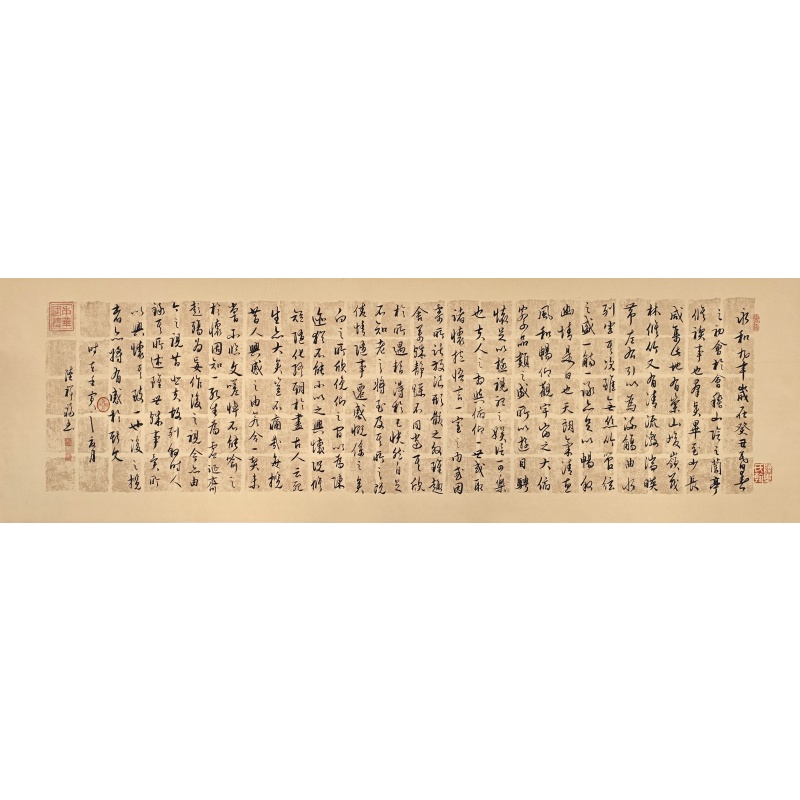 永和九年歲在癸丑暮春
之初會於會稽山陰之蘭亭
修禊事也群賢畢至少長
咸集此地有崇山峻嶺茂
林修竹又有清流激湍映
帶左右引以為流觴曲水
列坐其次雖無絲竹管弦
之盛一觴一詠亦足以暢敘
幽情是日也天朗氣清惠
風和暢仰觀宇宙之大俯
察品類之盛所以遊目騁
懷足以極視聽之娛信可樂
也夫人之相與俯仰一世或取
諸懷抱悟言一室之內或因
寄所託放浪形骸之外雖趣
舍萬殊靜躁不同當其欣
於所遇暫得於己快然自足
不知老之將至及其所之既
倦情隨事遷感慨係之矣
向之所欣俛仰之間以為陳
迹猶不能不以之興懷況修
短隨化終期於盡古人云死
生亦大矣豈不痛哉每攬
昔人興感之由若合一契未
嘗不臨文嗟悼不能喻之
於懷固知一死生為虛誕齊
彭殤為妄作後之視今亦由
今之視昔悲夫故列敘時人
錄其所述雖世殊事異所
以興懷其致一也後之攬
者亦將有感於斯文
時在壬寅